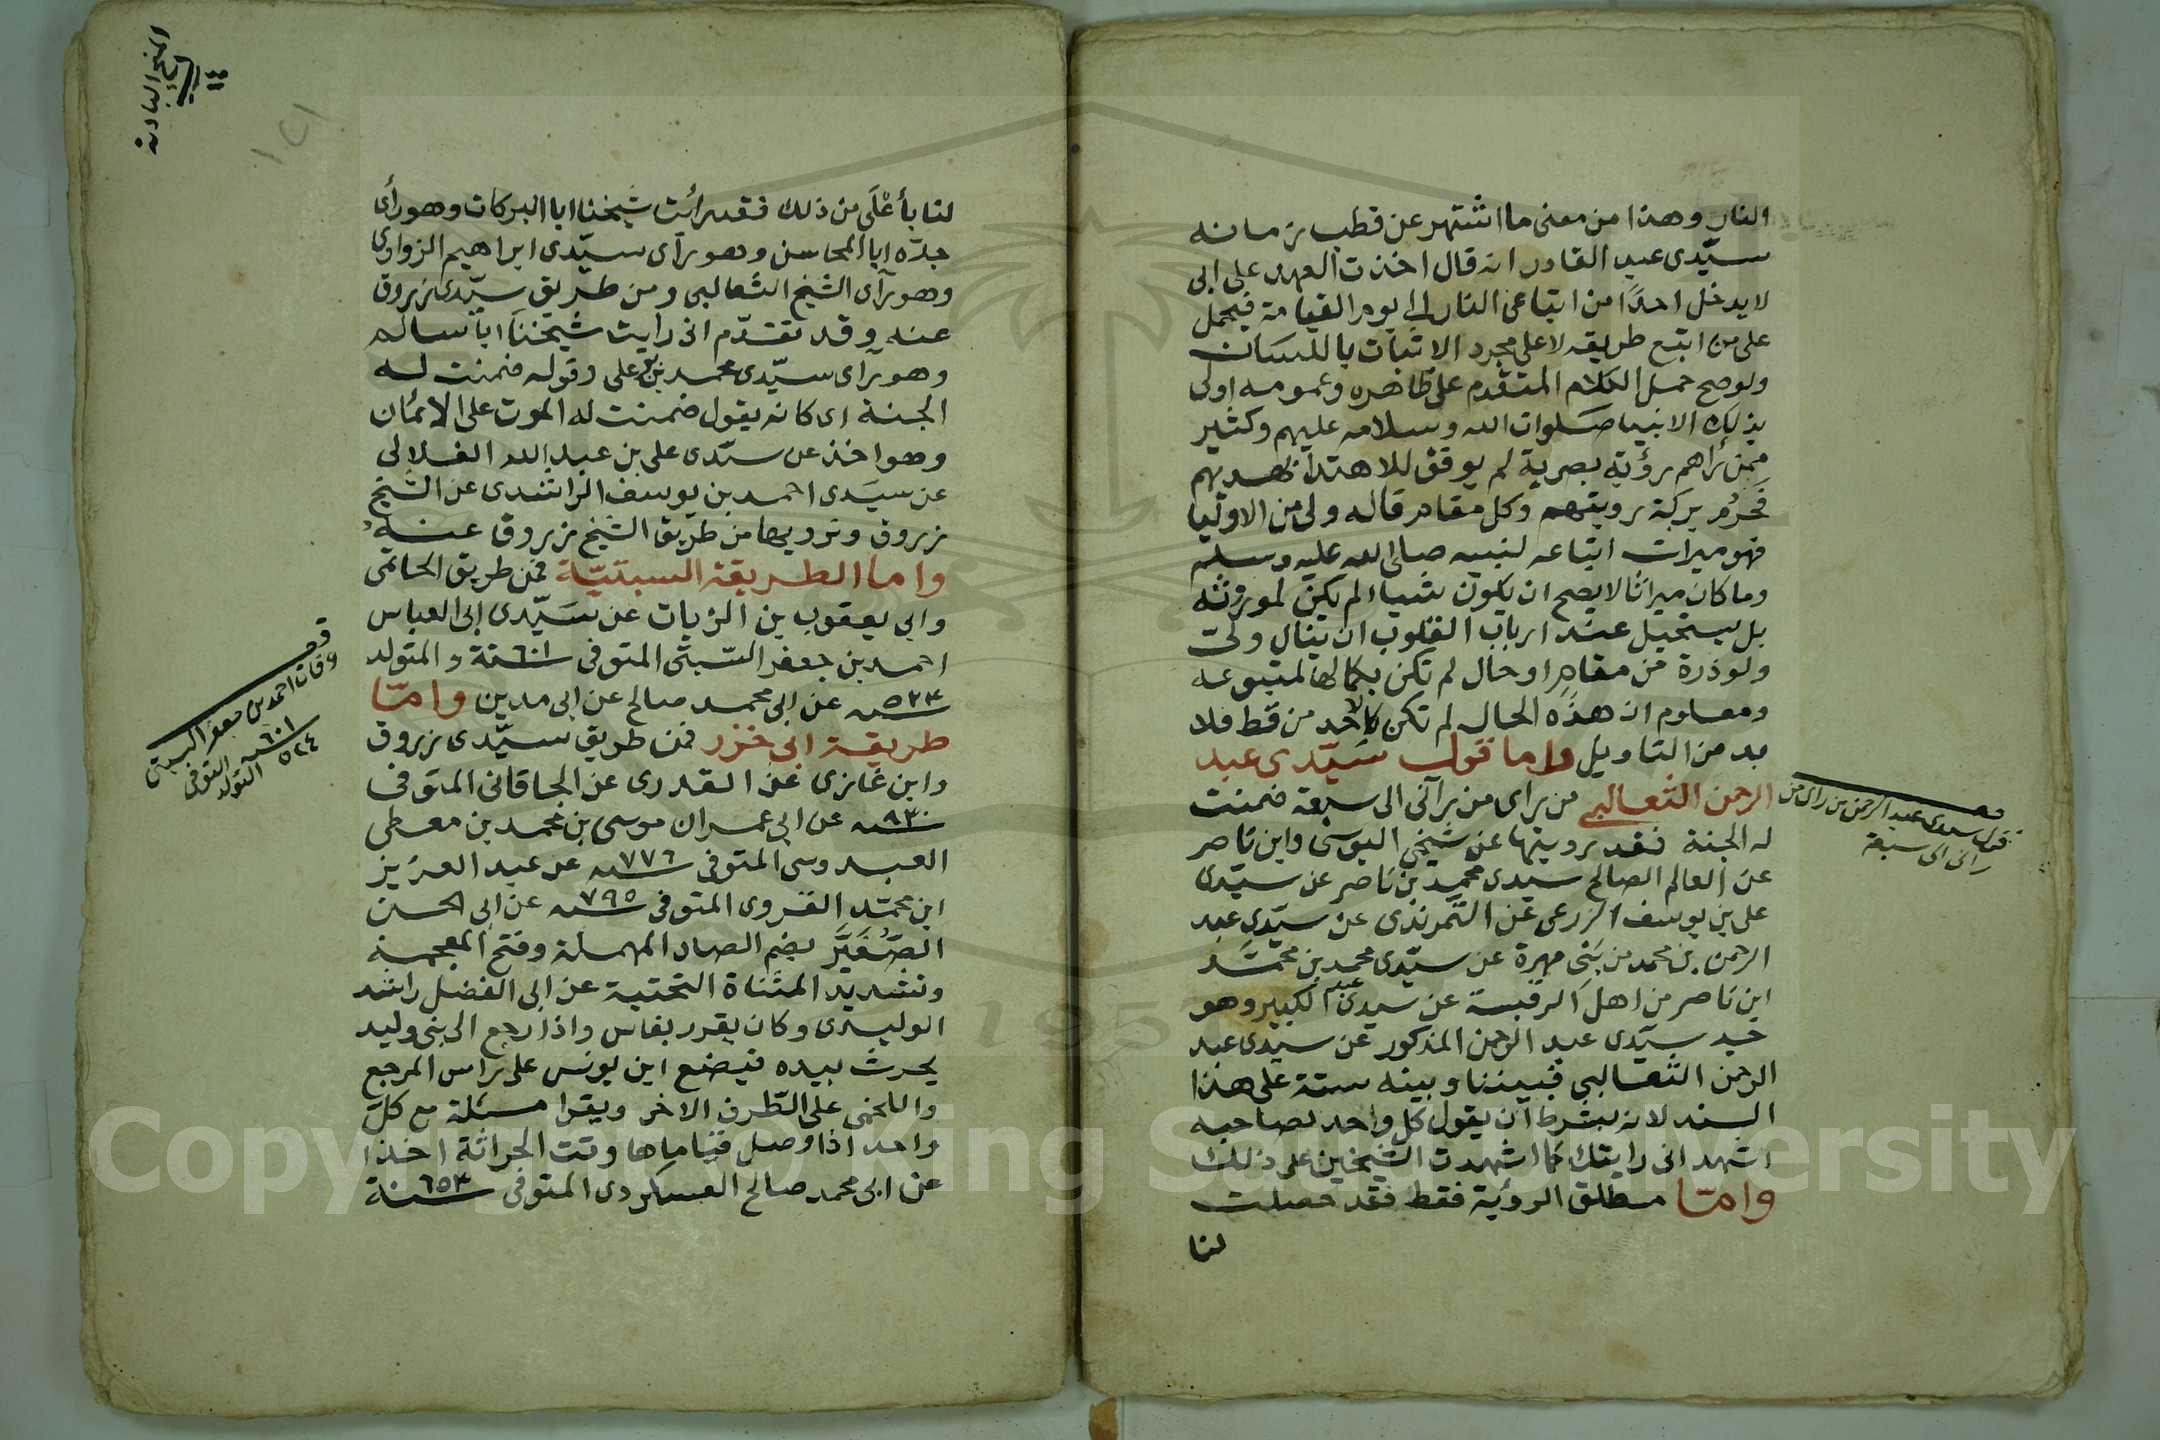 النار وهذا من معنى ما اشتهر عن قطب زمانه
سيّدى عبد القادر انه قال اخذت العهد على ابى
لا يدخل احدًا من اتباعى النار الى يوم القيامة فيحمل
على من اتبع طريقه لا على مجرد الاتيات باللسان
ولو صح حمل الكلام المتقدم على ظاهره وعمومه اولى
بذلك الانبيا صلوات الله وسلامه عليهم وكثير
ممن رأهم رؤية بصرية لم يوفق للاهتدا بهديهم
فحرم بركة رويتهم وكل مقام قاله ولى من الاوليا
فهو ميراث اتباعه لنبيه صلى الله عليه وسلم
وما كان ميراثا لا يصح ان يكون شياء لم يكن لموروثه
بل يستحيل عند ارباب القلوب ان ينال ولىّ
ولو ذرة من مقام او حال لم تكن بكمالها لمتبوعه
ومعلوم ان هذه الحال لم تكن لاحد من قط فلا
بد من التاويل واما قول سيّدى عبد
الرحمن الثعالبى من راى من رآنى الى سبعة ضمنت
له الجنة فقد رويتها عن شيخى اليوسى وابن ناصر
عن العالم الصالح سيدى محمد بن ناصر عن سيّدى
على بن يوسف الزرعى عن التمرنذى عن سيّدى عبد
الرحمن بن محمد من بنى مهرة عن سيّدى محمد بن محمّد
ابن ناصر من اهل الرقبة عن سيدى عمر الكبير وهو
جد سيّدى عبد الرحمن المذكور عن سيدى عبد
الرحمن الثعالبى فبيننا وبينه ستة على هذا
السند لانه بشرط ان يقول كل واحد لصاحبه
اشهد انى رايتك كما اشهدت الشيخين على ذلك
وامّا مطلق الرؤية فقط فقد حصلت
لنا
قول سيدى عبد الرحمن من راى من
رانى الى سبعة
المنح البادية
١٢١
لنا بأعْلَى من ذلك فقد رائت شيخنا ابا البركات وهو رأى
جدّه ابا المحاسن وهو رآى سيّدى ابراهيم الزواوى
وهو رآى الشيخ الثعالبى ومن طريق سيّدى زروق
عنه وقد تقدّم انى رايت شيخنا ابا سالم
وهو رآى سيّدى محمد بن على وقوله ضمنت له
الجنة اى كانه يقول ضمنت له الموت على الائمان
وهو اخذ عن سيّدى على بن عبد الله الفلالى
عن سيَدى احمد بن يوسف الراشدى عن الشيخ
زروق ونرويها من طريق الشيخ زروق عنه
واما الطريقة السبتيّة فمن طريق الحاتمى
وابى يعقوب بن الزيات عن سَيّدى ابى العباس
احمد بن جعفر السّبتى المتوفى سنة ٦٠١ والمتولد
سنه ٥٢٣ عن ابى محمد صالح عن ابى مدين وامّا
طريقة ابى خزر فمن طريق سيّدى زروق
وابن غازى عن القدرى عن الجاقانى المتوفى
سنه ٨٣٠ عن ابى عمران موسى بن محمد بن معطى
العبدوسى المتوفى سنه ٧٧٦ عن عبد العزيز
ابن محمّد القروى المتوفى سنه ٧٩٥ عن ابى الحسن
الصُّغَيَّر بضم الصاد المهملة وفتح المعجمة
وتشديد المثناة التحتية عن ابى الفضل راشد
الوليدى وكان يقرر بفاس واذا رجع الى بنى وليد
يحرث بيده فيضع ابن يونس على راس المرجع
واللخمى على الطّرف الاخر ويقرا مسئلة مع كلّ
واحد اذا وصل قياماها وقت الحراثة اخذا
عن ابى محمد صالح العسكردى المتوفى سنة ٦٥٣
قف
وفات احمد بن جعفر السبتى
سنه ٦٠١ المتوفى
المتولد ٥٢٤
Copyright © King Saud University
1957